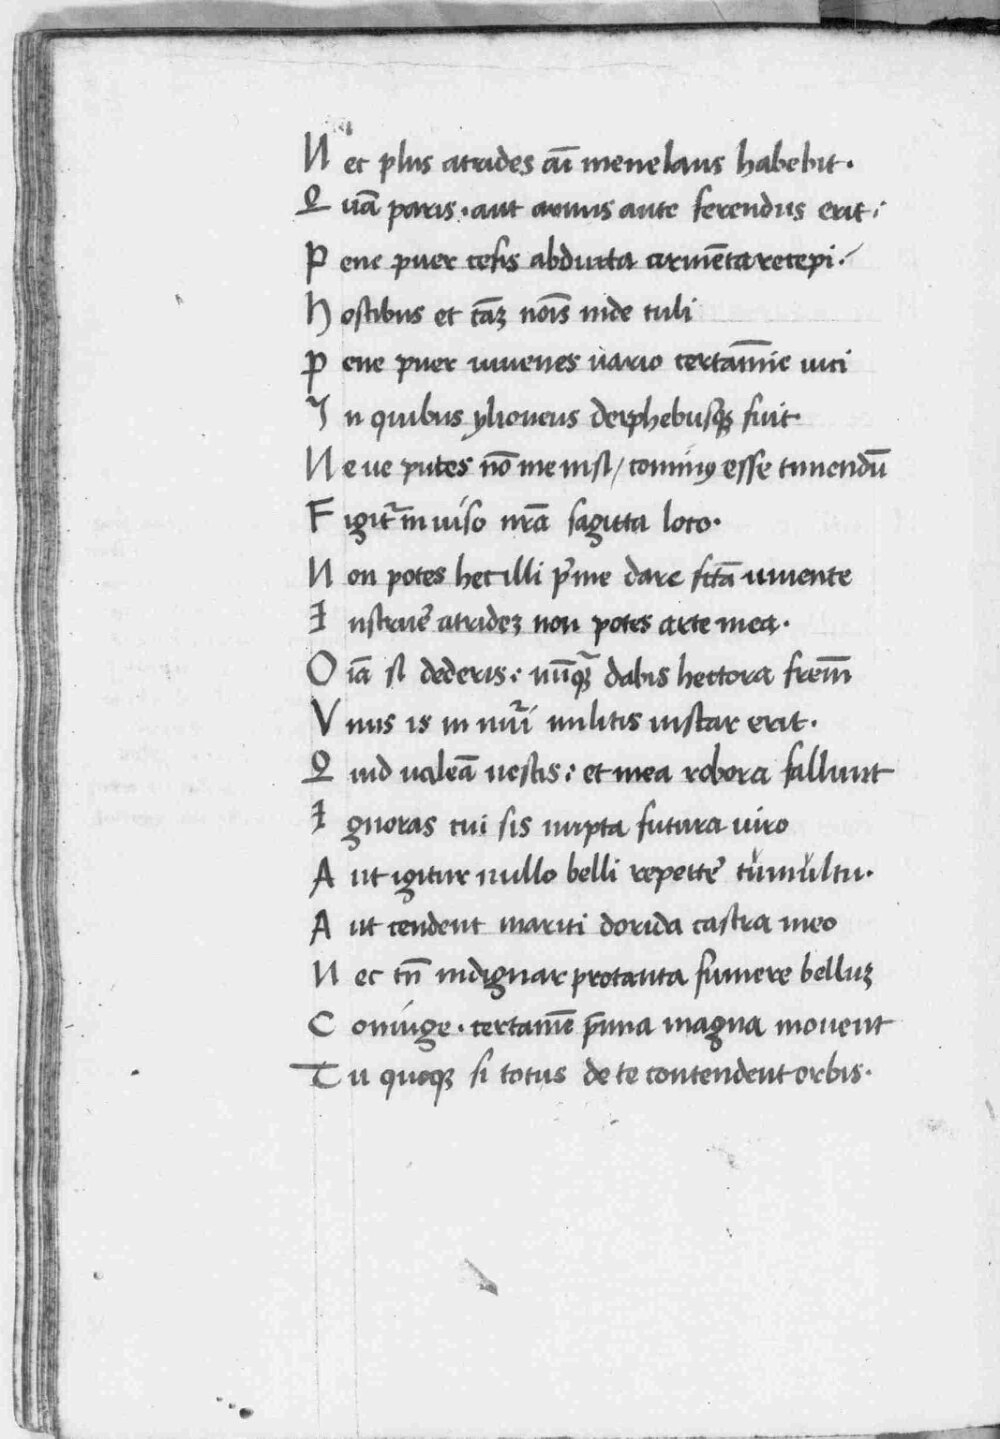 N ec plus atrides aĩ menelaus habebit.
Q uã paris. aut armis ante ferendus erit:
P ene puer cesis abducta armẽta recepi.
H ostibus et cãꝫ noĩs inde tuli
P ene puer iuuenes uario certamĩe uici
I n quibus ylioneus deiphebusqꝫ fuit.
N e ue putes nõ me nisi / cominꝰ esse timendũ
F igit᷑ in uiso nrã sagitta loco.
N on potes hec illi pͥme dare fctã iuuente
I nstrue᷑ atridẽ non potes arte mea.
O ĩa si dederis: nũqͣ dabis hectora fratrẽ
V nus is in nũi militis instar erit.
Q uid ualeã nescis: et mea robora fallunt
I gnoras cui sis nupta futura uiro
A ut igitur nullo belli repetere tumultu.
A ut cendent mariti dorida castra meo
N ec tñ indignar pro tanta sumere belluꝫ
C oniuge. certamẽ p̃mia magna mouent
T u quoqꝫ si totus de te contendent orbis.